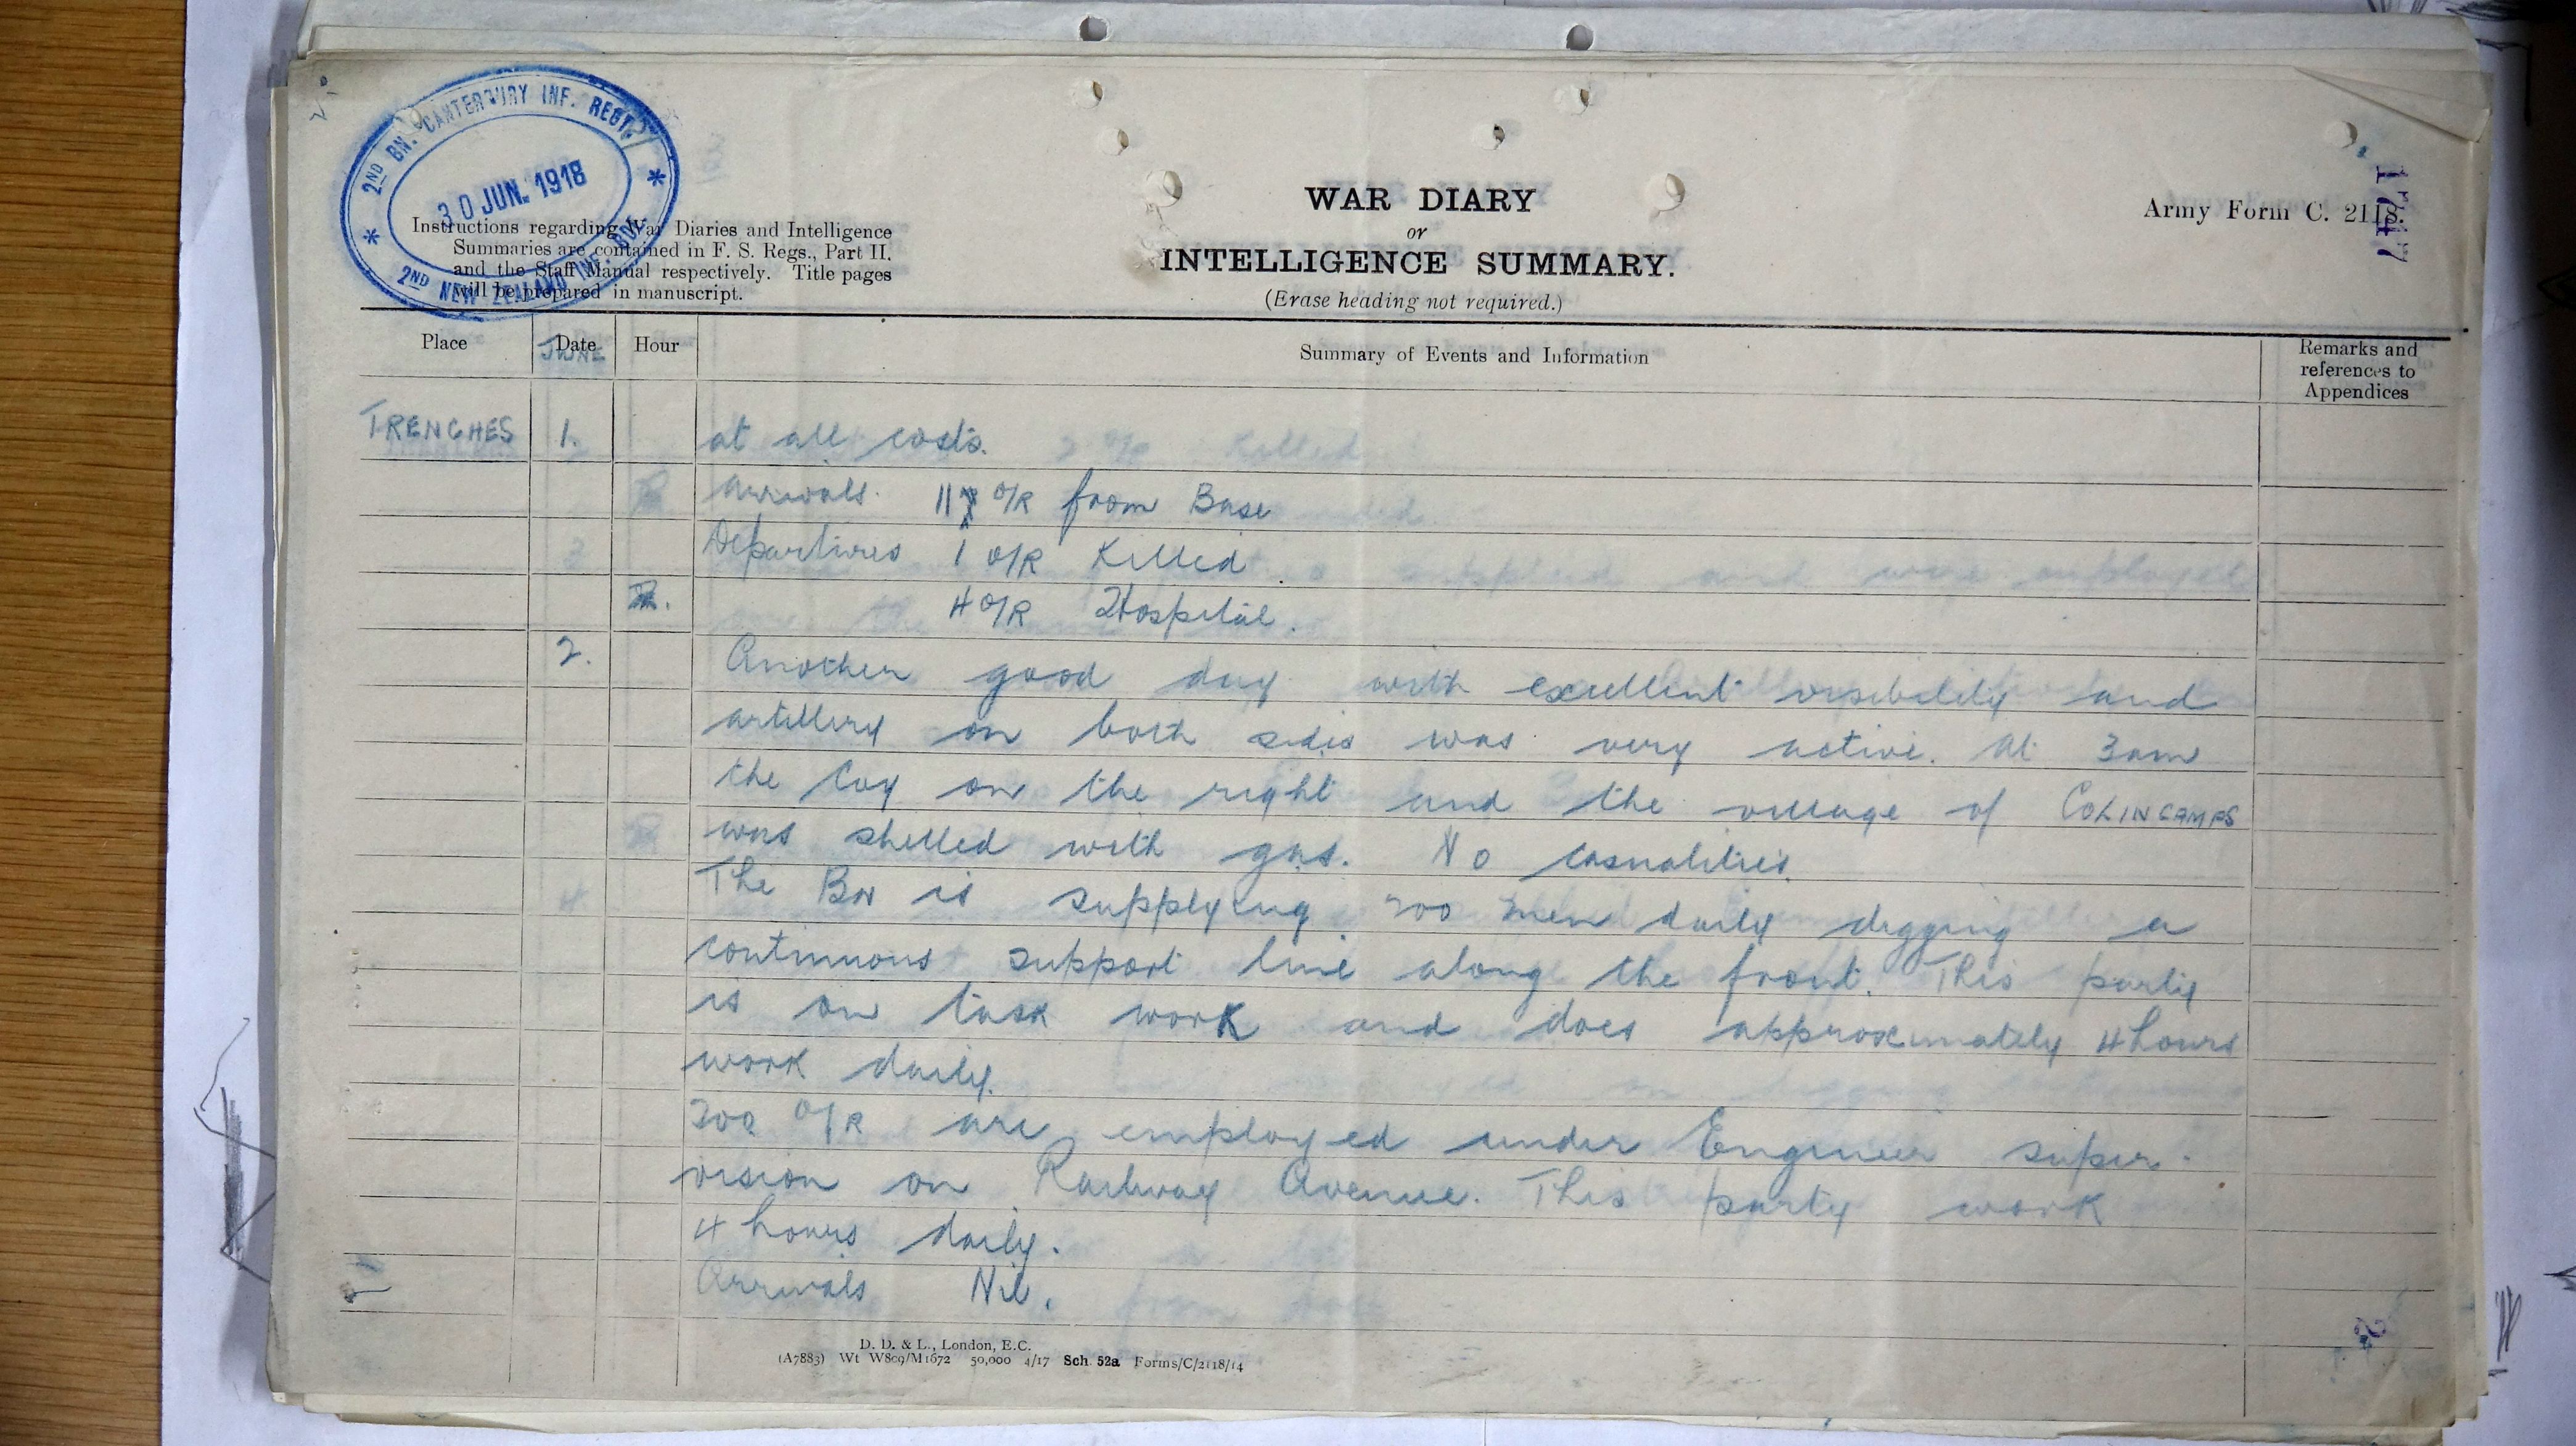 2ND BN. CANTERBURY INF. REGT.
30 JUN. 1918
2ND NEW ZEALAND INF. BDE.
Instructions regarding War Diaries and Intelligence
Summaries are contained in F. S. Regs., Part II.
and the Staff Manual respectively. Title pages
will be prepared in manuscript.
WAR DIARY
or
INTELLIGENCE SUMMARY.
(Erase heading not required.)
Army Form C. 2118.
1747
Place Date Hour Summary of Events and Information Remarks and
references to
Appendices
JUNE
TRENCHES 1. at all costs.
Arrivals. O/R from Base
Departures 1 O/R Killed
4 O/R Hospital.
2. Another good day with excellent visibility and
artillery on both sides was very active. At 3am
the Coy on the right and the village of COLINCAMPS
was shelled with gas. No casualities.
The BN is supplying 200 men daily digging a
continuous support line along the front. This party
is on task work and does approximately 4 hours
work daily.
200 O/R are employed under Engineer super-
vision on Railway Avenue. This party work
4 hours daily.
Arrivals Nil.
D. D. & L., London, E.C.
(A7883) Wt W809/M1672 50,000 4/17 Sch. 52a Forms/C/2118/14